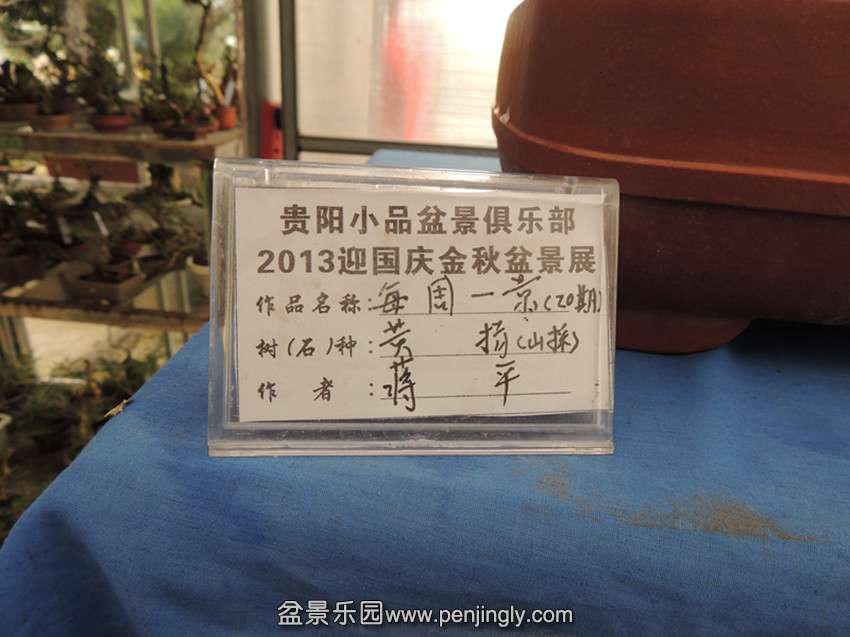 贵阳小品盆景俱乐部
2013迎国庆金秋盆景展
作品名称:每周一景(20期)
树(石)种:黄楊(山採)
作者:蒋平
盆景乐园www.penjingly.com